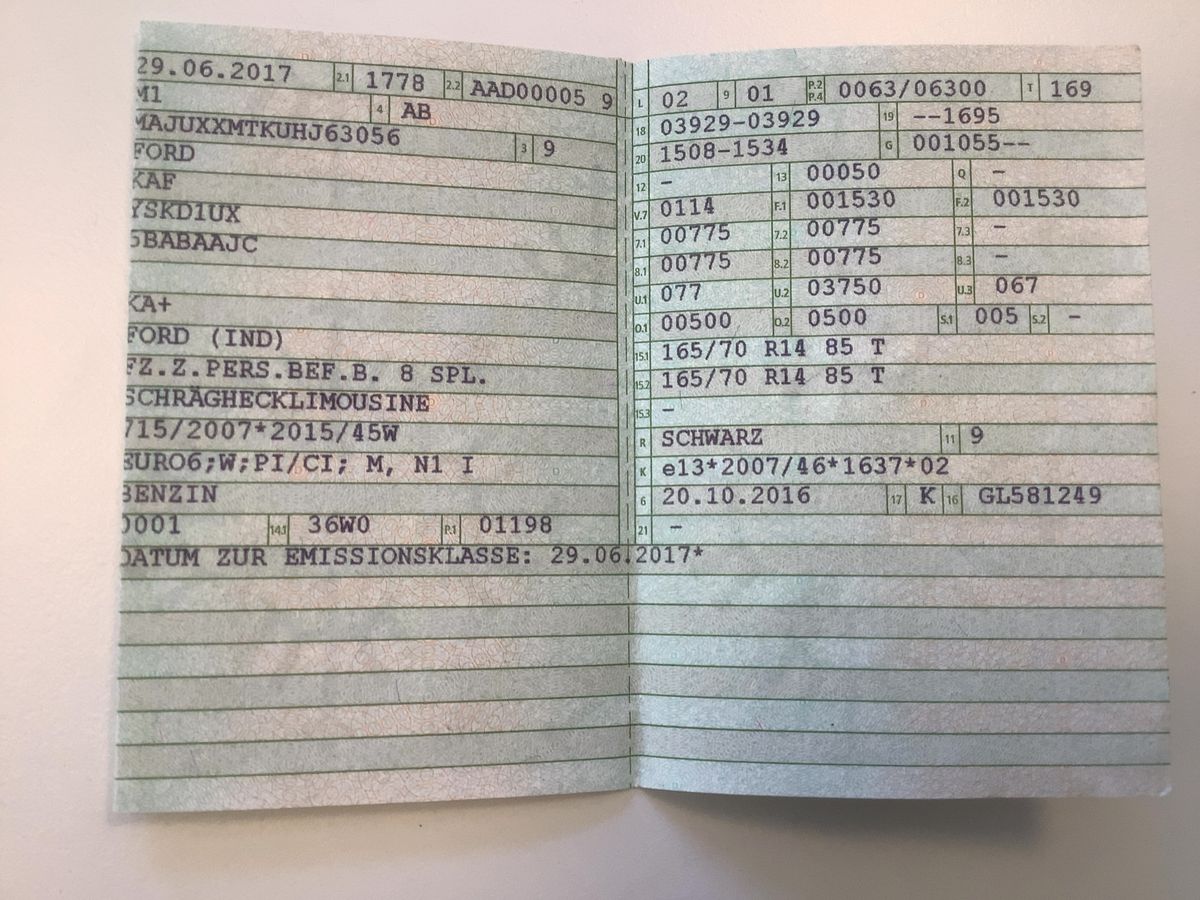 29.06.2017 2.1 1778 2.2 AAD00005 9
M1 4 AB
MAJUXXMTKUHJ63056 3 9
FORD
KAF
YSKD1UX
5BABAAJC
KA+
FORD (IND)
FZ.Z.PERS.BEF.B. 8 SPL.
SCHRÄGHECKLIMOUSINE
715/2007*2015/45W
EURO6;W;PI/CI; M, N1 I
BENZIN
0001 14.1 36W0 P.1 01198
DATUM ZUR EMISSIONSKLASSE: 29.06.2017*
L 02 9 01 P.2 P.4 0063/06300 T 169
18 03929-03929 19 --1695
20 1508-1534 G 001055--
12 - 13 00050 Q -
V.7 0114 F.1 001530 F.2 001530
7.1 00775 7.2 00775 7.3 -
8.1 00775 8.2 00775 8.3 -
U.1 077 U.2 03750 U.3 067
O.1 00500 O.2 0500 S.1 005 S.2 -
15.1 165/70 R14 85 T
15.2 165/70 R14 85 T
15.3 -
R SCHWARZ 11 9
K e13*2007/46*1637*02
6 20.10.2016 17 K 16 GL581249
21 -